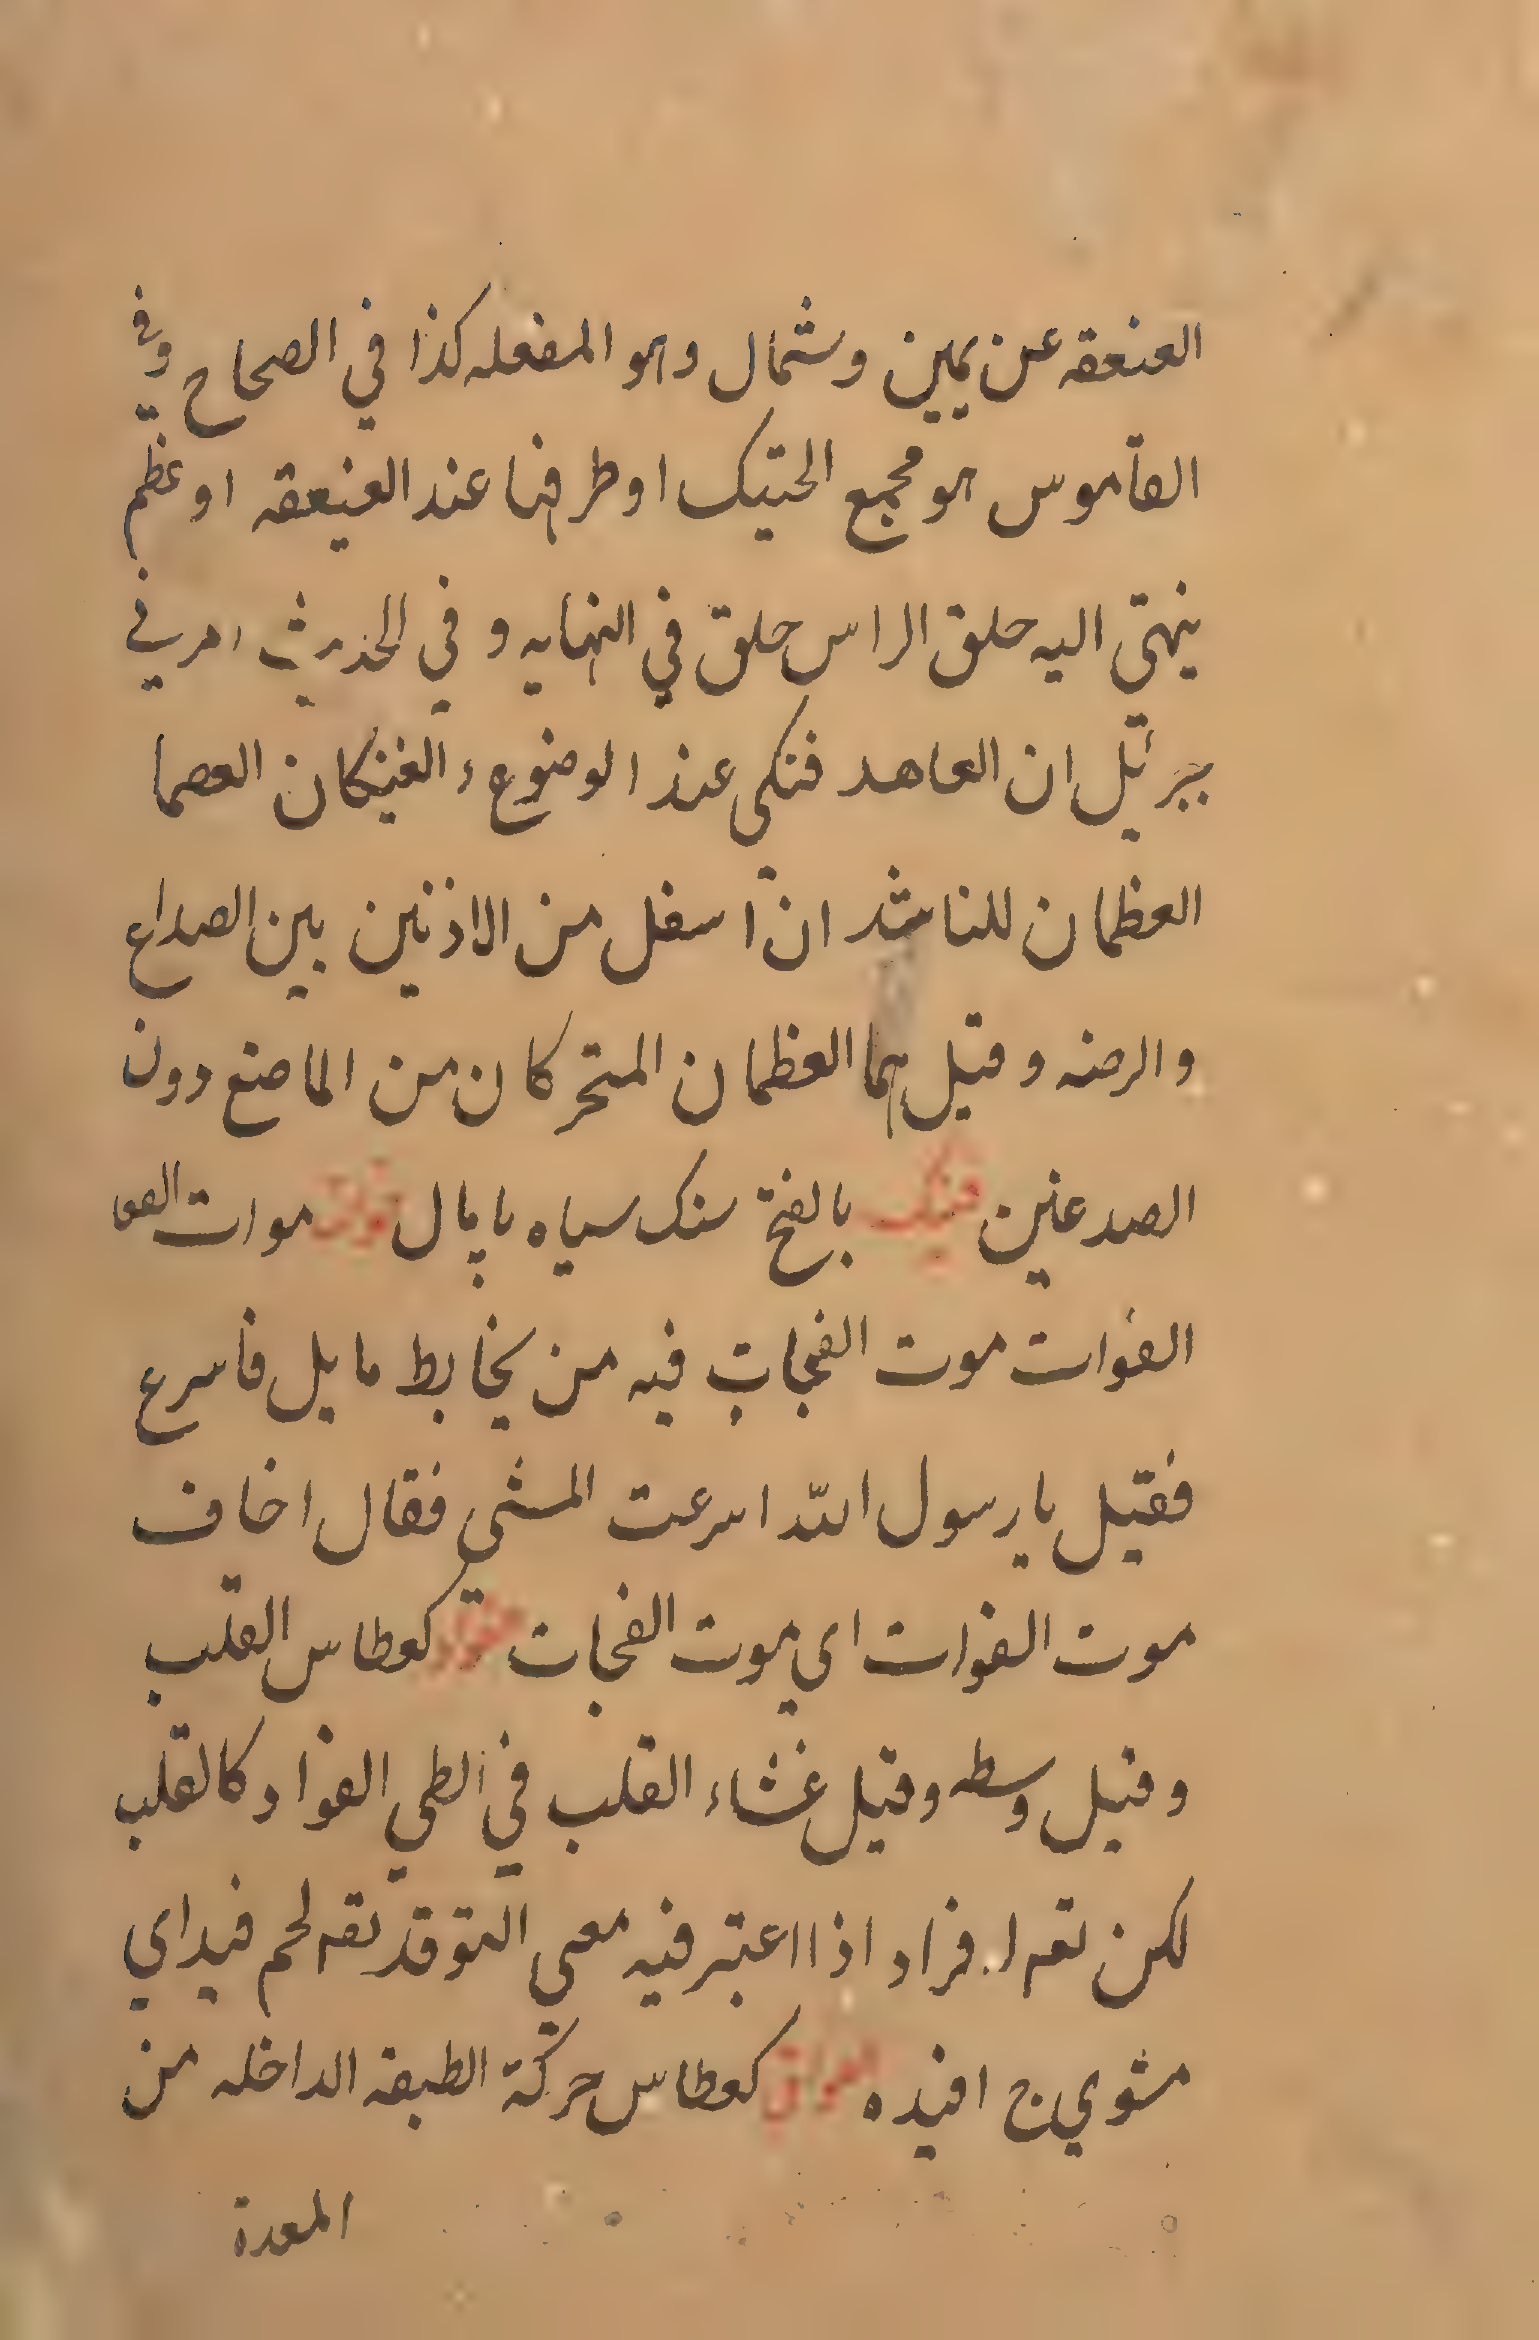 العنعقه عن يمين وشمال وهو المفعله كذا في الصحاح وفي
القاموس هو مجمع الحتيك اوطرفها عند العنعقه او عظم
ينهتي اليه حلق الراس حلق في النهايه و في الحديث امرني
جبرئيل ان العاهد فنكي عند الوضوع ء الفنيكان العصما
العظمان للناشد ان اسفل من الاذنين بين الصداع
والرضه وقيل هما العظمان المتحركان من الماضغ دون
الصدغين فنك بالفتح سنك سياه با پال فوات موات الفو
الفوات موت الفجات فيه من بخابط مايل فاسرع
فقيل يا رسول الله اسرعت المشي فقال اخاف
موت الفوات اي موت الفجات فواد كعطاس القلب
وقيل وسطه وقيل غشاء القلب في الطي الفواد كالقلب
لكن فراد اذا اعتبر فيه معني التوقد يقه لحم فيد اي
مشوي ج افيده الفواق كعطاس حركة الطبقه الداخله من
المعدة